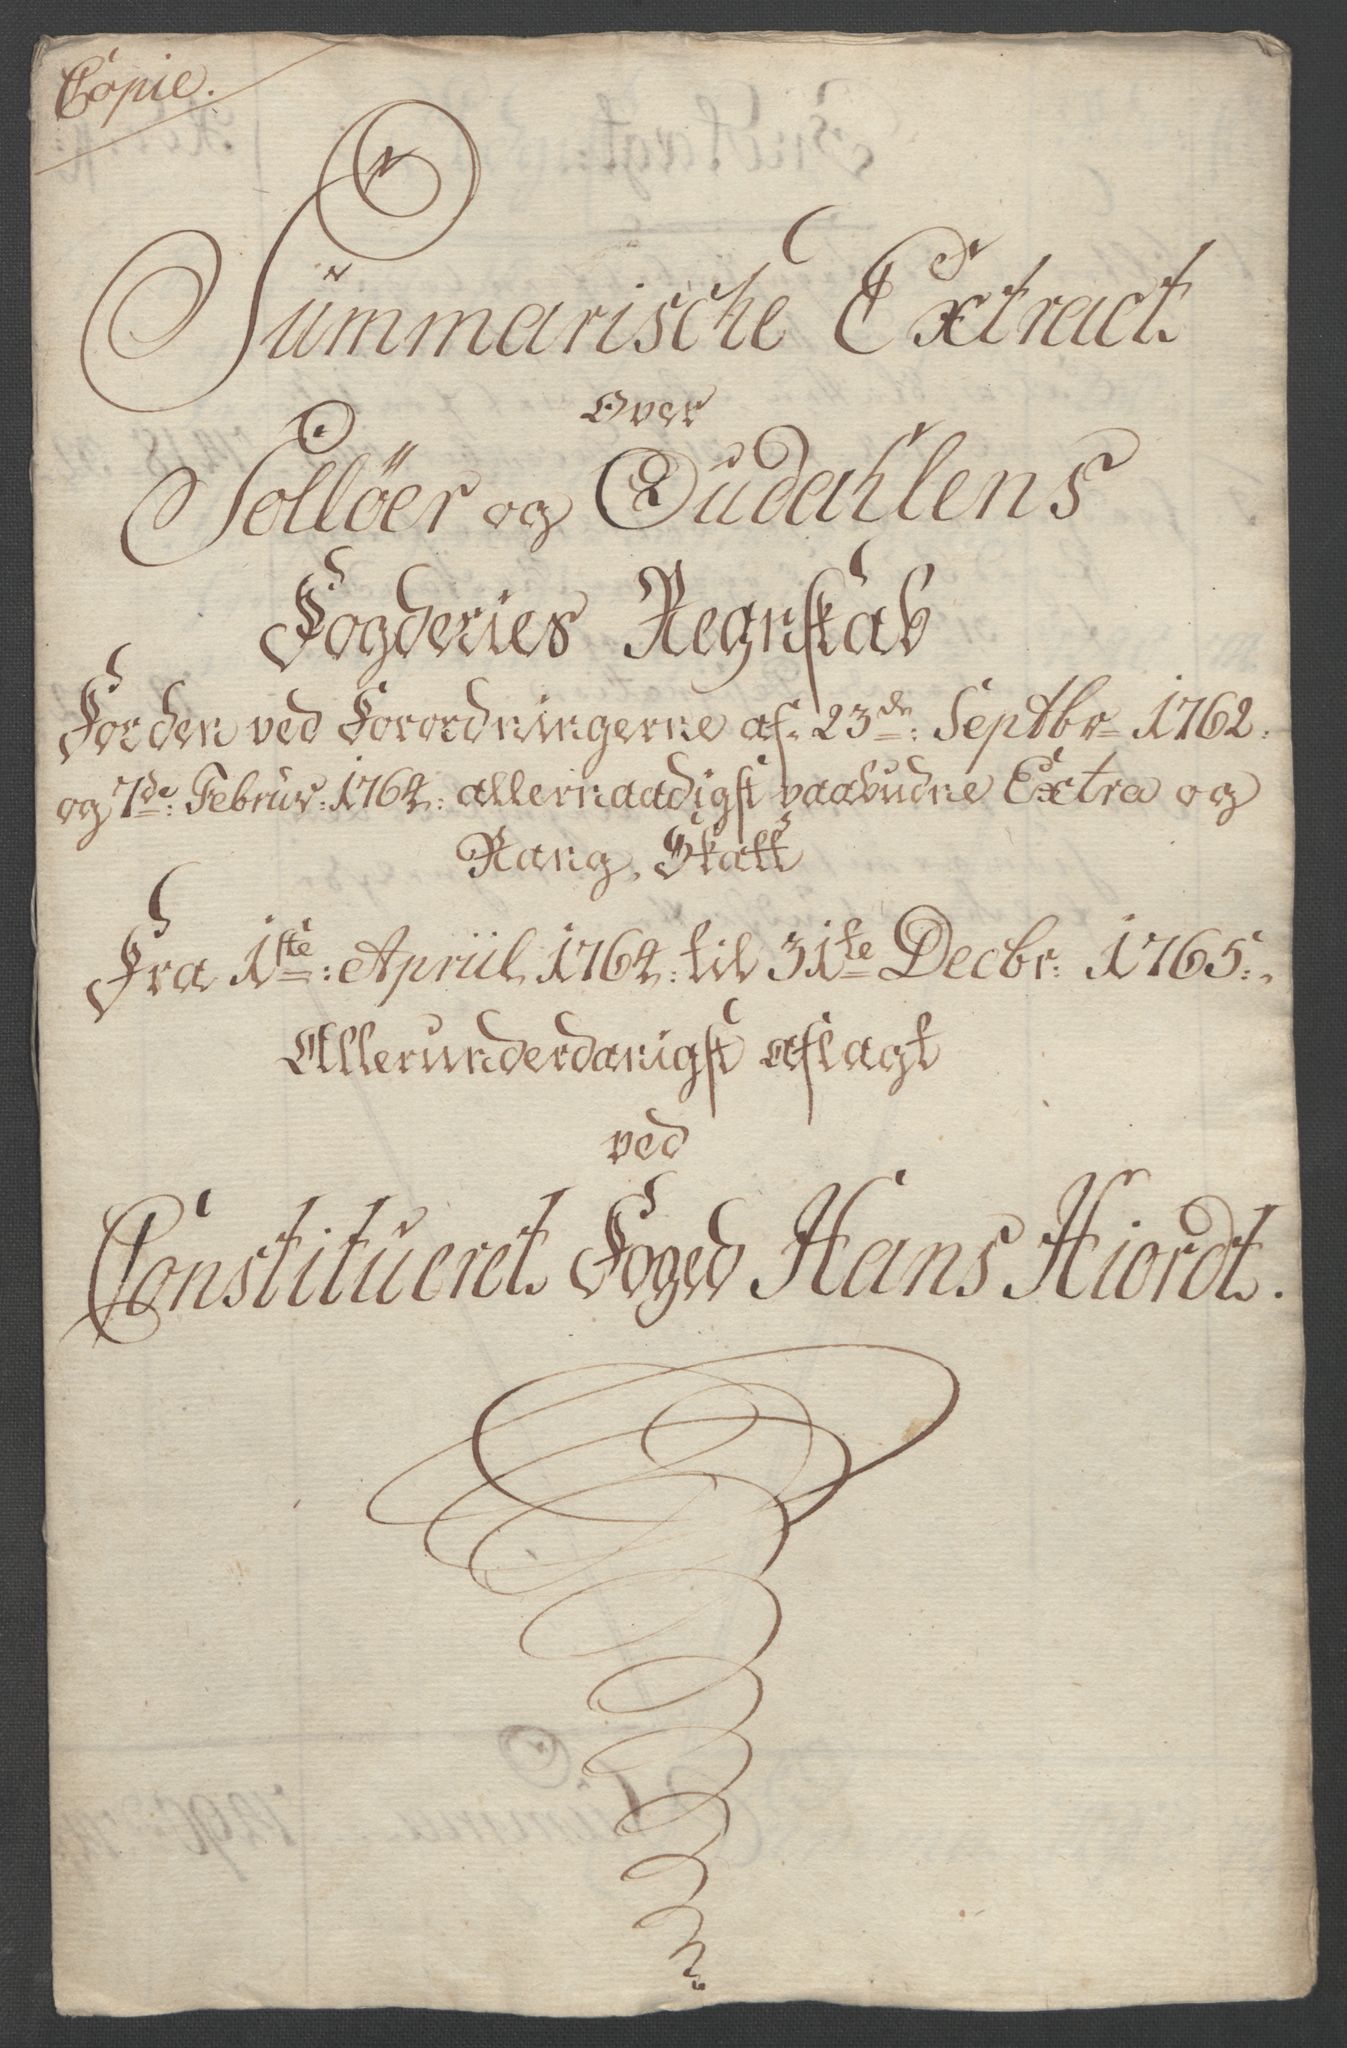 Copie.
Summarische Extract
Over
Sollöer og Oudahlens
Fogderies Regnskab
For den ved Forordningerne af 23de: Septbr 1762.
og 7de: Februr: 1764. allernaadigst paabudne Extra og
Rang, Skatt
Fra 1ste: Apriil 1764. til 31te Decbr: 1765.
Allerunderdanigst aflagt
ved
Constitueret Foged Hans Hiordt.